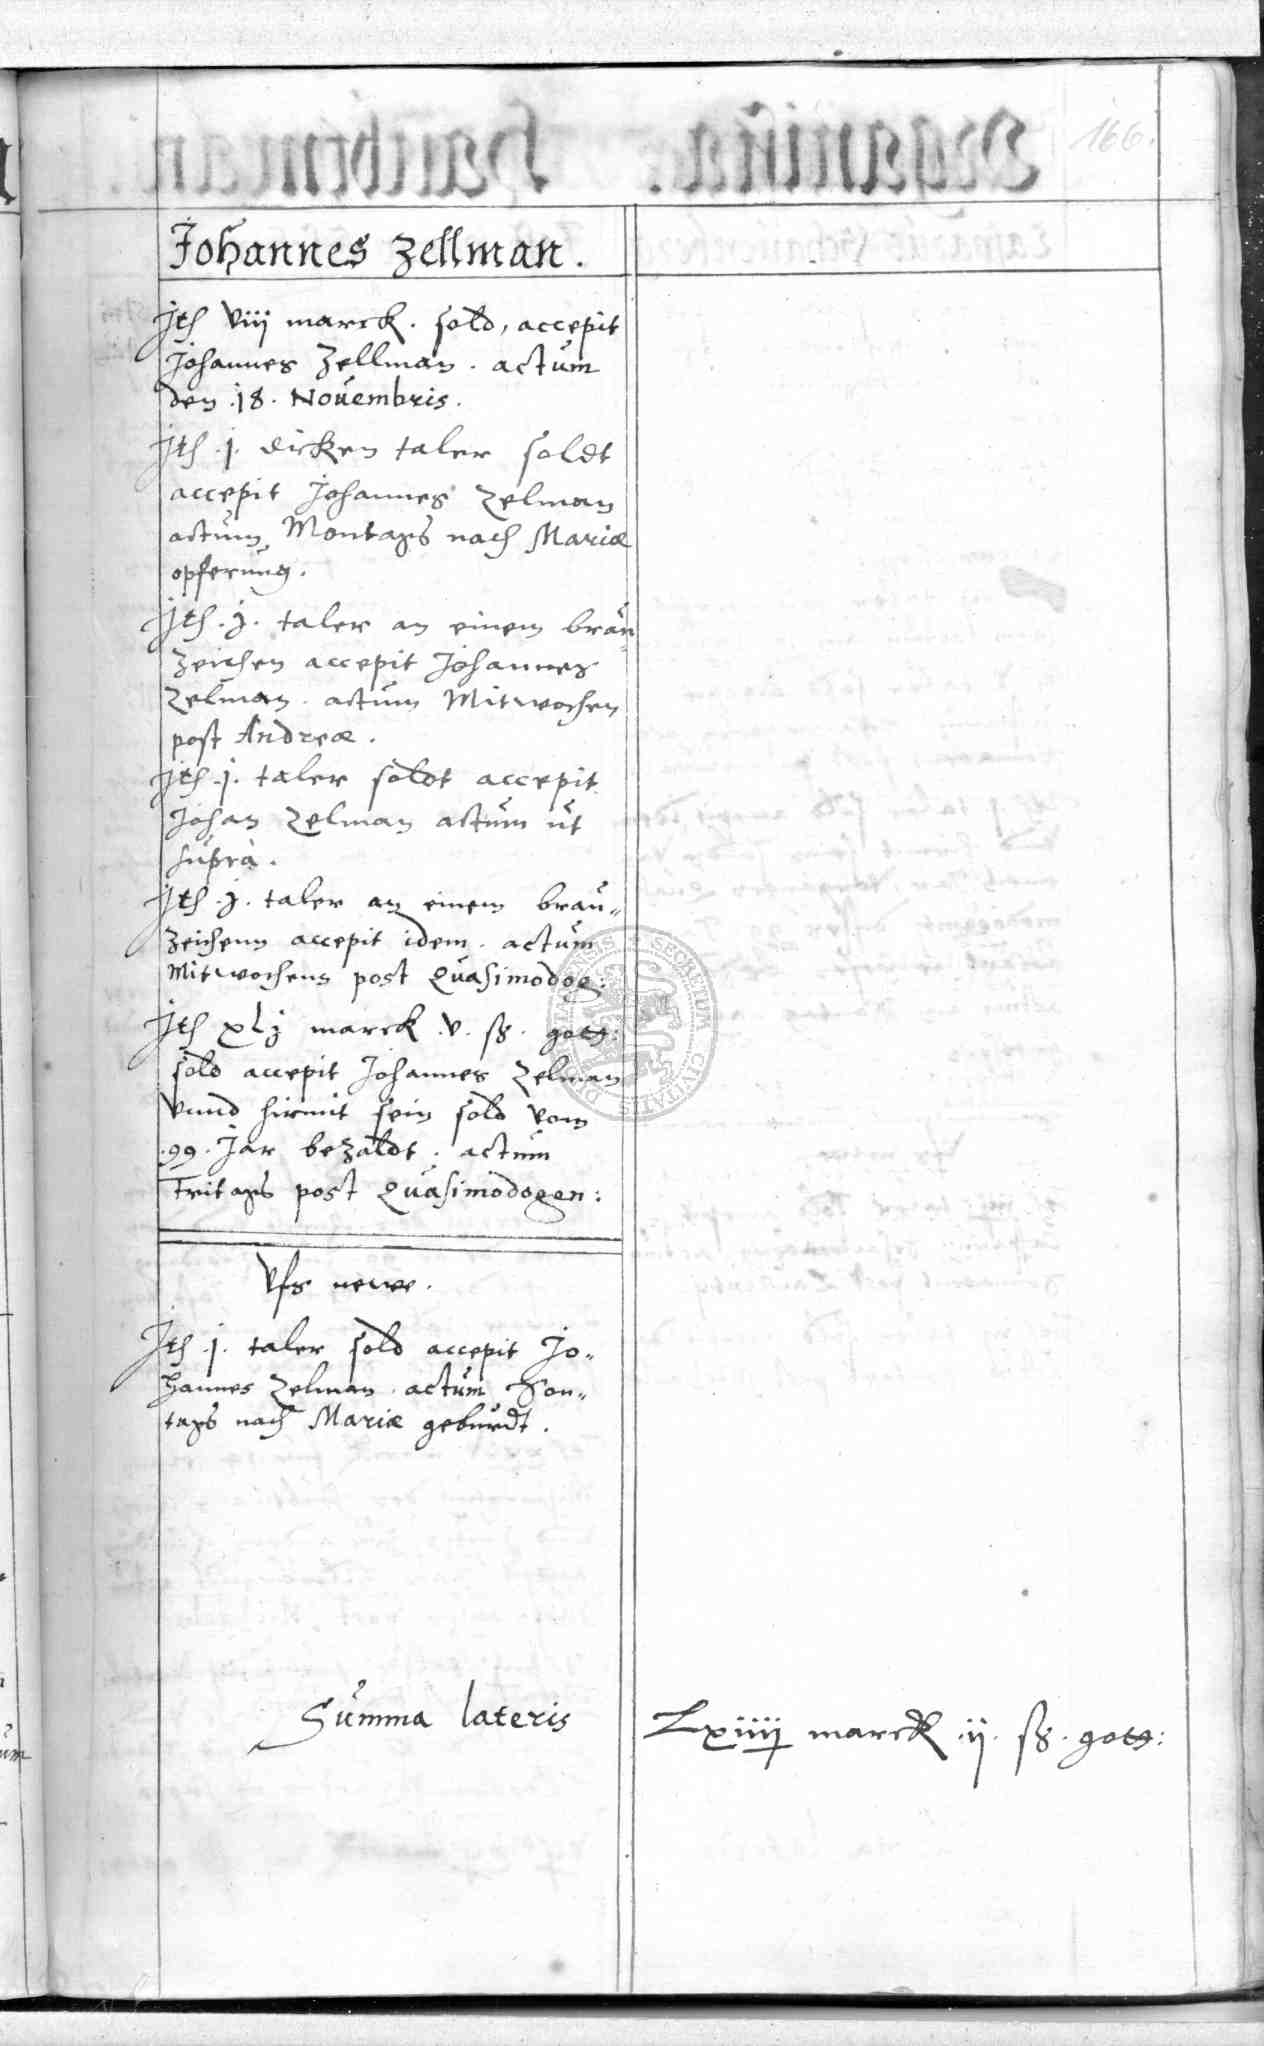 166.
Johannes Zellman.
Jtħ viij marck. sold, accepit
Johannes Zellman. actum
den .18. Nouembris.
Jtħ .j. dicken taler soldt
accepit Johannes Zelman
actum Montags nach Mariæ
opferung.
Jtħ .j. taler an einem brau-
zeichen accepit Johannes
Zelman. actum Mitwochen
post Andreæ.
Jtħ .j. taler soldt accepit
Johan Zelman actum ut
supra.
Jtħ .j. taler an einem brau-
zeichenn accepit idem. actum
Mitwochens post Quasimodog:
Jtħ xLj marck .v. ß. gottg:
sold accepit Johannes Zelman
vnnd hirmit sein sold vom
.99. Jar bezaldt. actum
Fritags post Quasimodogen:
Vfs newe.
Jtħ .j. taler sold accepit Jo-
hannes Zelman. actum Son-
tags nach Mariæ geburdt.
Summa lateris Lxiiij marck .ij. ß. gottg: